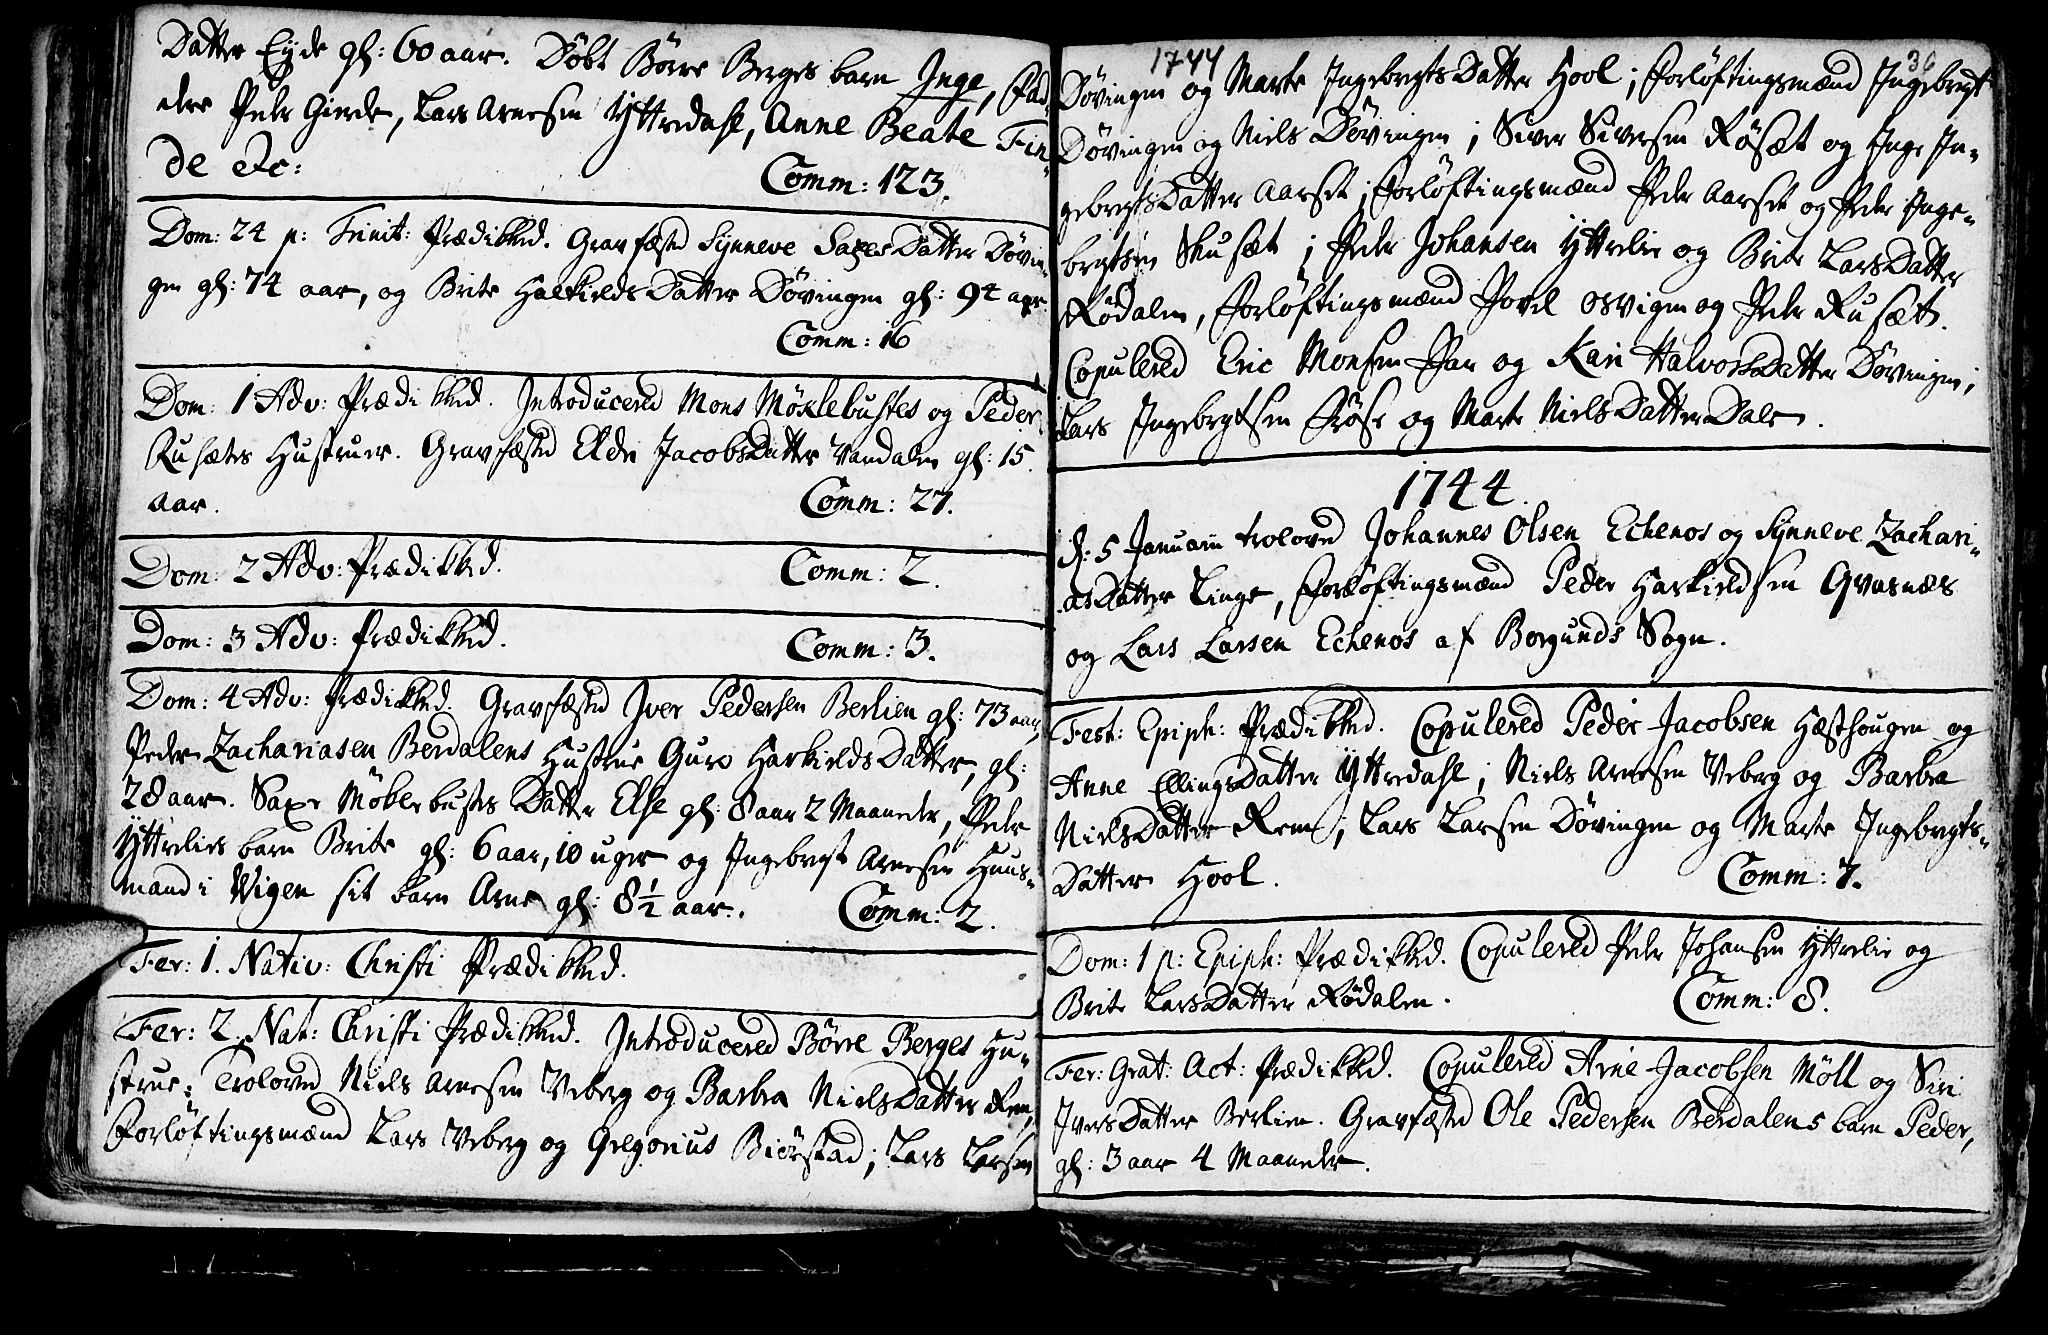 Datter Eyde gl: 60 aar. Döbt Börre Berges barn Inge, Fad-
dere Peder Gierde, Lars Arnesen Yttredahl, Anne Beate Fin-
de etc: Comm: 123.
Dom: 24 p: Trinit: Prædikked. Gravfæsted Synneve SaxesDatter Dövin-
gen gl: 74 aar, og Brite HalkieldsDatter Dövingen gl: 94 aar.
Comm: 16
Dom: 1 Adv: Prædikked. Introducered Mons Möxlebustes og Peder
Rusætes Hustruer. Gravfæsted Elde JacobsDatter Vandalen gl: 15
aar. Comm: 27.
Dom: 2 Adv: Prædikked. Comm: 2.
Dom: 3 Adv: Prædikked. Comm: 3.
Dom: 4 Adv: Prædikked. Gravfæsted Iver Pedersen Berlien gl: 73 aar,
Peder Zachariasen Berdalens Hustrue Guro HarkieldsDatter, gl:
28 aar. Saxe Möblebustes Datter Else gl: 8 aar 2 Maaneder, Peder
Yttrelies barn Brite gl: 6 aar, 10 uger og Ingebregt Arnesen Huus-
mand i Wigen sit barn Arne gl: 8½ aar. Comm: 2.
Fer: 1. Nativ: Christi Prædikked.
Fer: 2. Nat: Christi Prædikked. Introducered Börre Berges Hu-
strue; Trolovd Niels Arnesen Veberg og Barbra NielsDatter Rem,
Forlöftingsmænd Lars Veberg og Gregorius Biörstad; Lars Larsen
1744 36
Dövingen og Marte IngebregtsDatter Hool; Forlöftingsmænd Ingebregt
Dövingen og Niels Dövingen; Siver Siversen Rösæt og Inge In-
gebregtsDatter Aarset; Forlöftingsmænd Peder Aarset og Peder Inge-
bregtsen Skusæt; Peder Johansen Yttrelie og Brite LarsDatter
Rödalen, Forlöftingsmænd Povel Osvigen og Peder Rusæt.
Copulered Eric Monsen Par og Kari HalvorsDatter Dövingen;
Lars Ingebregtsen Fröse og Marte NielsDatter Dale.
1744.
d: 5 Januarii trolovd Johannes Olsen Echenos og Synneve Zachari-
asDatter Linge, Forlöftingsmænd Peder Harkieldsen Qvasnæs
og Lars Larsen Echenos af Borgunds Sogn.
Fest: Epiph: Prædikked. Copulered Peder Jacobsen Hæsthougen og
Anne EllingsDatter Yttredahl; Niels Arnesen Veberg og Barbra
NielsDatter Rem; Lars Larsen Dövingen og Marte Ingebregts-
Datter Hool. Comm: 7.
Dom: 1 p: Epiph: Prædikked. Copulered Peder Johansen Yttrelie og
Brite LarsDatter Rödalen. Comm: 8.
Fer: Grat: Act: Prædikked. Copulered Arne Jacobsen Möll og Siri
IversDatter Berlien. Gravfæsted Ole Pedersen Berdalens barn Peder,
gl: 3 aar 4 Maaneder.